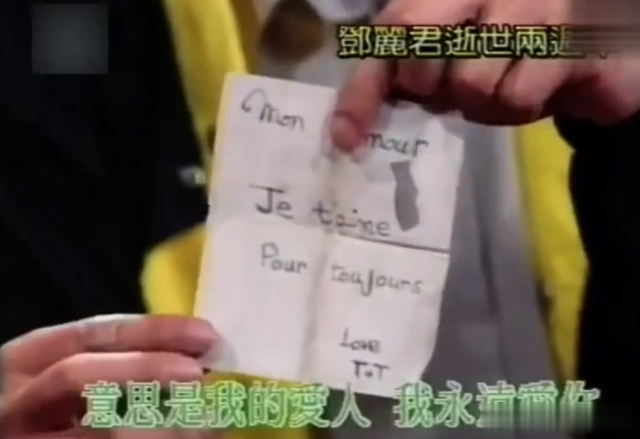 鄧麗君逝世兩週
Mon amour
Je t'aime
Pour toujours
Love
TxT
意思是我的愛人 我永遠愛你